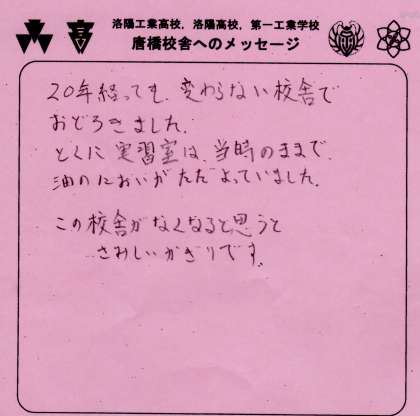 洛陽工業高校，洛陽高校，第一工業学校
唐橋校舎へのメッセージ
20年経っても、変わらない校舎で
おどろきました。
とくに実習室は、当時のままで、
油のにおいがただよっていました。
この校舎がなくなると思うと
さみしいかぎりです。